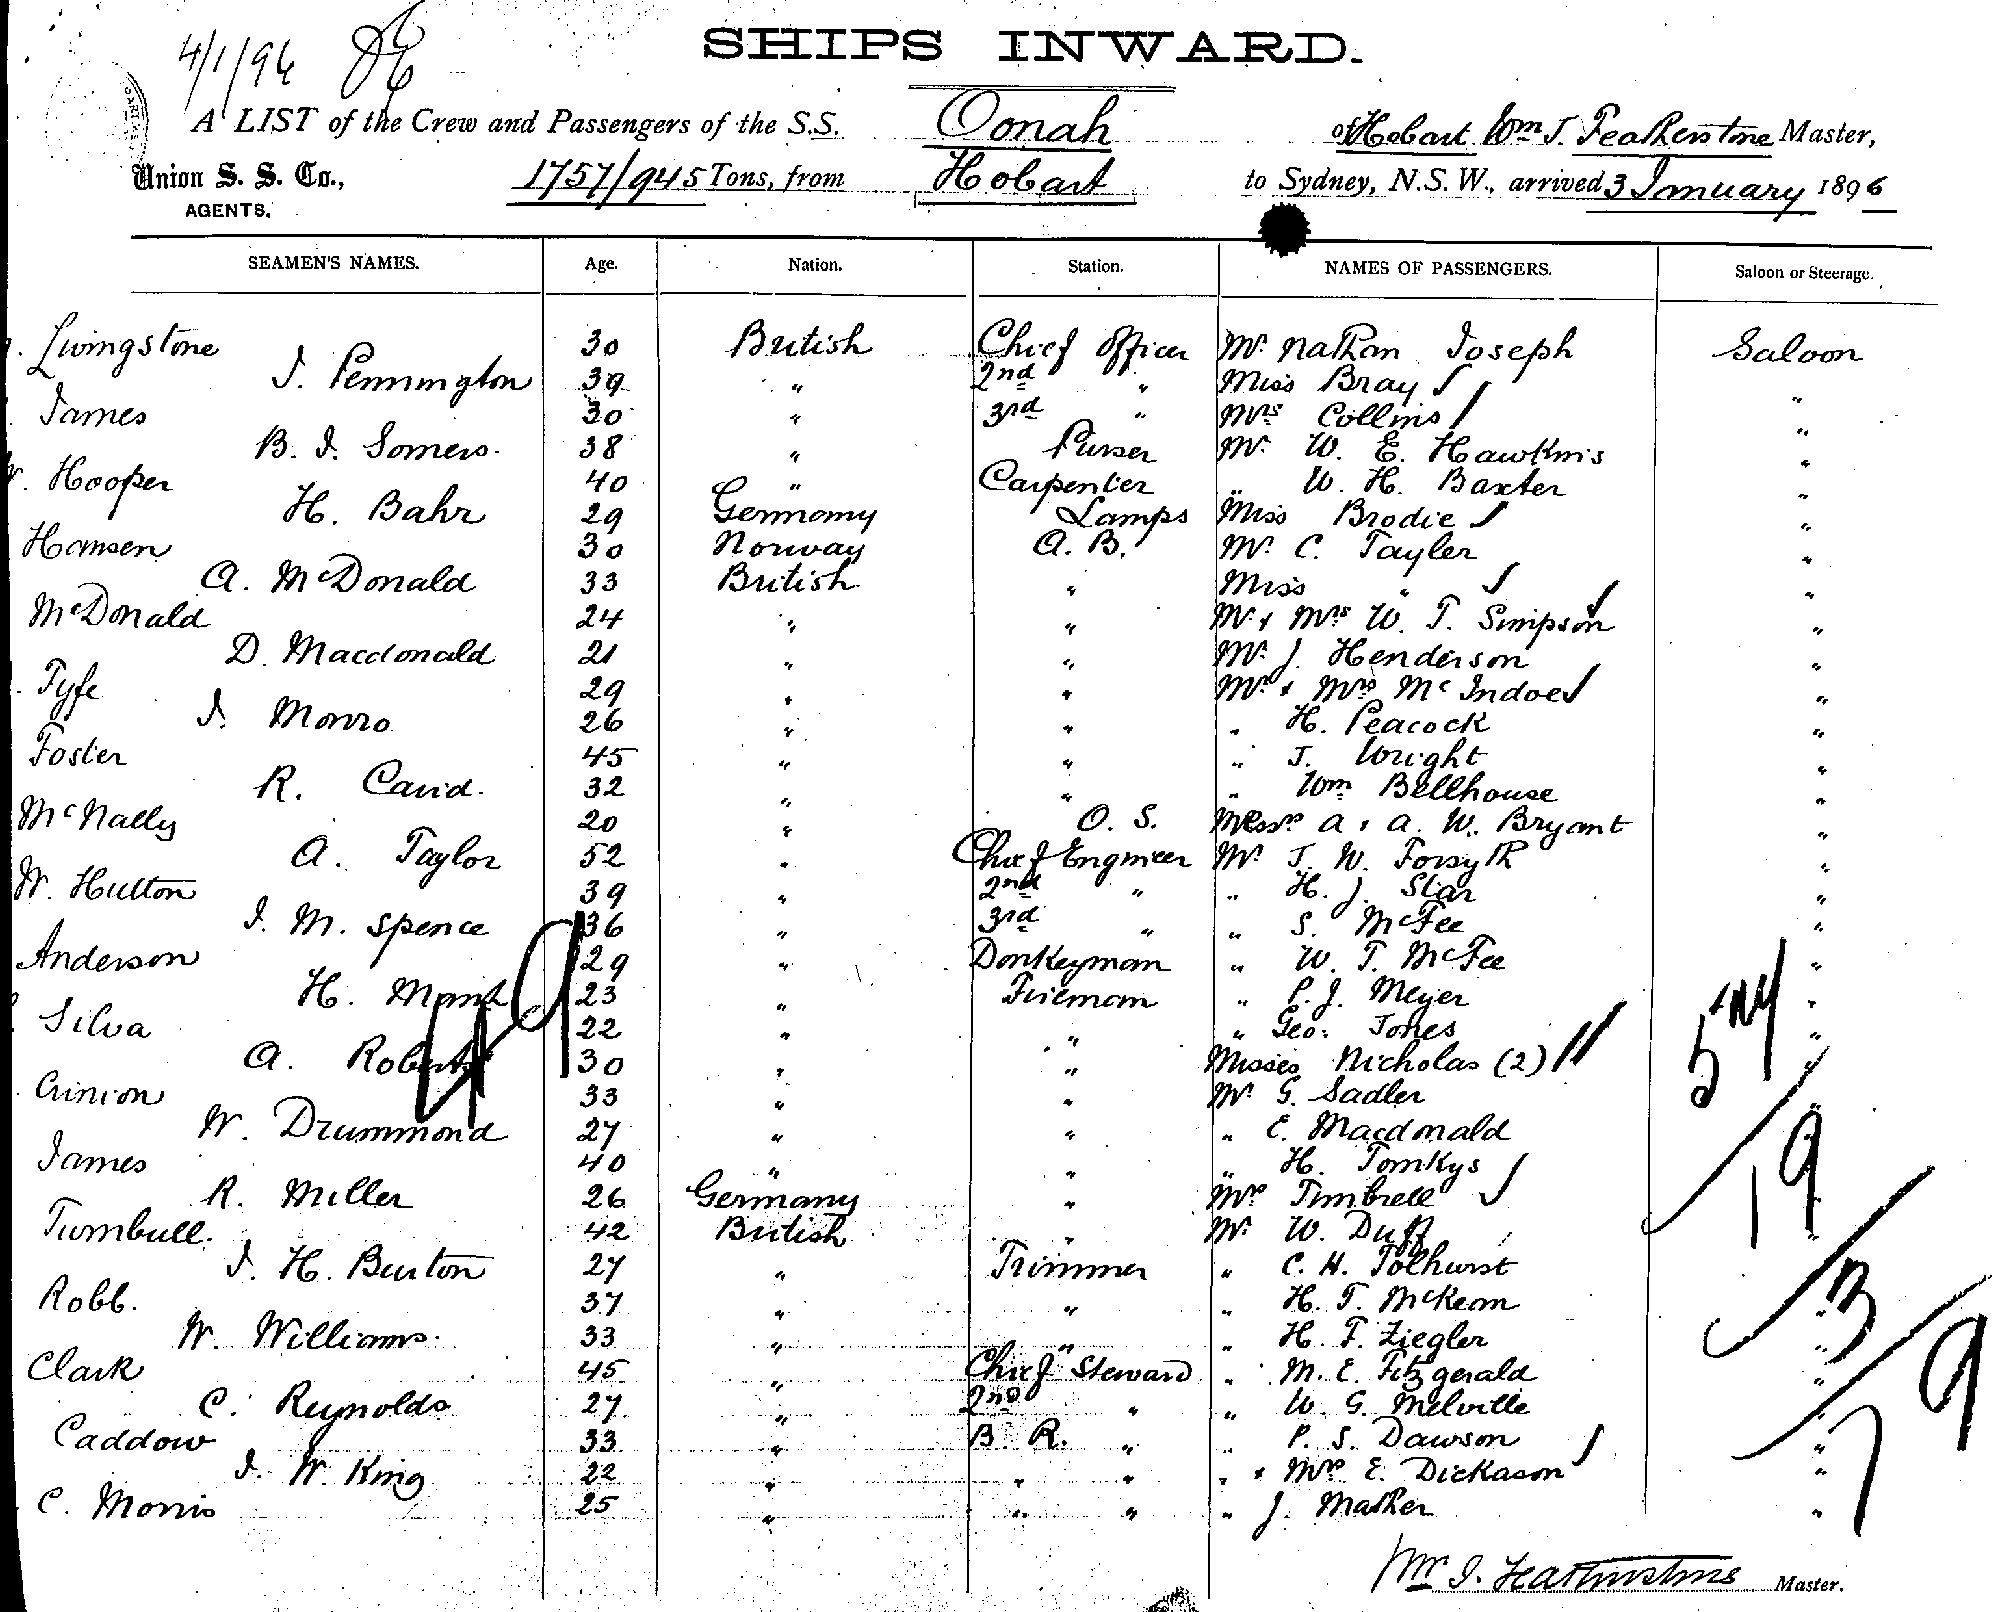 4/1/96
SHIPS INWARD.
A LIST of the Crew and Passengers of the S.S. Oonah of Hobart Wm J. Featherstone Master,
Union S. S. Co., 1757/945 Tons, from Hobart to Sydney, N.S.W., arrived 3 January 1896
AGENTS.
SEAMEN'S NAMES. Age. Nation. Station. NAMES OF PASSENGERS. Saloon or Steerage.
Livingstone 30 British Chief Officer Mr. Nathan Joseph Saloon
J. Pennington 39 " 2nd " Miss Bray "
James 30 " 3rd " Mrs Collins "
B. J. Somers. 38 " Purser Mr. W. E. Hawkins "
Hooper 40 " Carpenter " W. H. Baxter "
H. Bahr 29 Germany Lamps Miss Brodie "
Hansen 30 Norway A. B. Mr. C. Tayler "
A. McDonald 33 British " Miss " "
McDonald 24 " " Mr. & Mrs W. T. Simpson "
D. Macdonald 21 " " Mr. J. Henderson "
Fyfe 29 " " Mr. & Mrs McIndoe "
J. Monro 26 " " " H. Peacock "
Foster 45 " " " J. Wright "
R. Caird. 32 " " " Wm Bellhouse "
McNally 20 " O. S. Messrs A & A. W. Bryant "
A. Taylor 52 " Chief Engineer Mr. J. W. Forsyth "
W. Hutton 39 " 2nd " " H. J. Star "
J. M. Spence 36 " 3rd " " S. McFee "
Anderson 29 " Donkeyman " W. T. McFee "
H. 23 " Fireman " P. J. Meyer "
Silva 22 " " " Geo: Jones "
A. Roberts 30 " " Misses Nicholas (2) "
Crinion 33 " " Mr. G. Sadler "
W. Drummond 27 " " " E. Macdonald "
James 40 " " " H. Tomkys "
R. Miller 26 Germany " Mrs Timbrell "
Turnbull. 42 British " Mr. W. Duff "
J. H. Burton 27 " Trimmer " C. H. Tolhurst "
Robb. 37 " " " H. T. McKean "
W. Williams. 33 " " " H. F. Ziegler "
Clark 45 " Chief Steward " M. E. Fitzgerald "
C. Reynolds 27 " 2nd " " W. G. Melville "
Caddow 33 " B. R. " " P. S. Dawson "
J. W. King 22 " " " " & Mrs E. Dickason "
C. Morris 25 " " " " J. Mather "
49
19
3
7
9
Wm J. Featherstone Master.